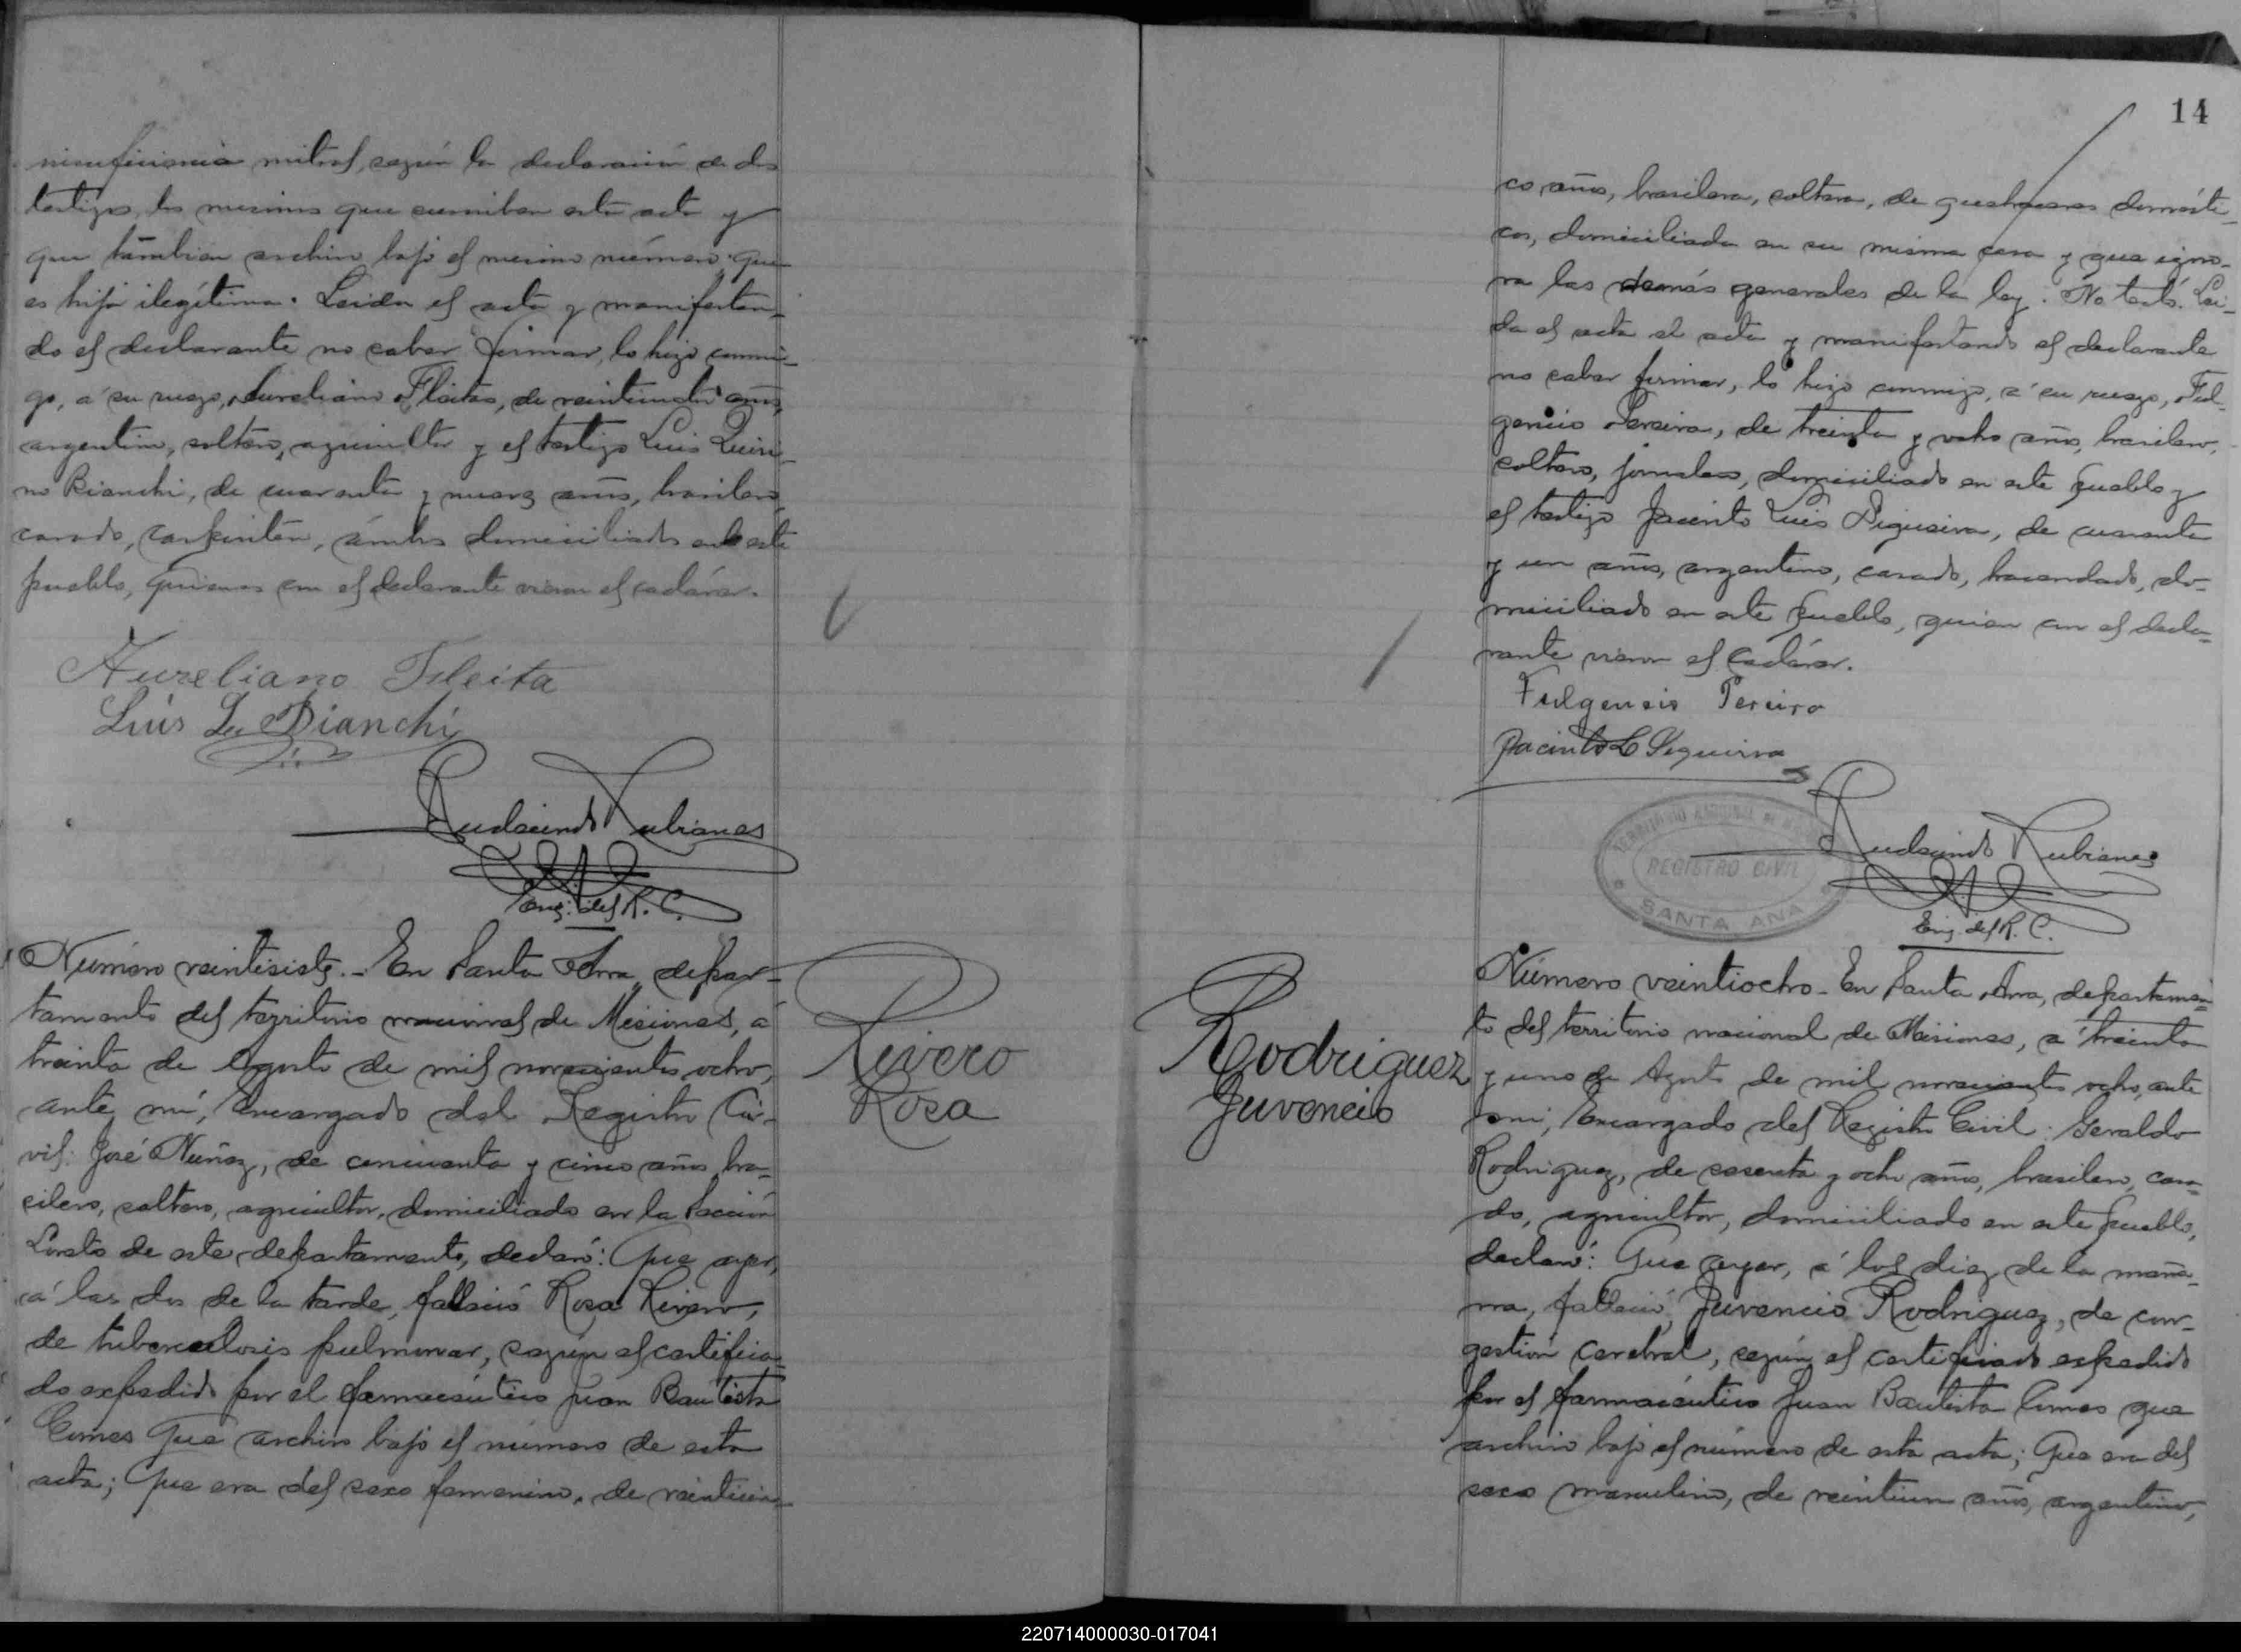 insuficiencia mitral, según la declaración de dos
testigos, los mismos que suscriben esta acta y
que tambien archivo bajo el mismo número; que
es hija ilegítima. Leida el acta y manifestan-
do el declarante no saber firmar, lo hizo conmi-
go, á su ruego, Aureliano Fleitas, de años,
argentino, soltero, agricultor y el testigo Luis Quiri-
no Bianchi, de cuarenta y nueve años, brasilero,
casado, carpintero, ámbos domiciliados en este
pueblo, quienes con el declarante vieron el cadáver.
Aureliano Fleita
Luis Q. Bianchi
Rudecindo Rubianes
Enc. del R. C.
Número veintisiete.- En Santa Ana, depar-
tamento del territorio nacional de Misiones, á
treinta de Agosto de mil novecientos ocho,
ante mí, Encargado del Registro Ci-
vil: José Nuñez, de cincuenta y cinco años, bra-
silero, soltero, agricultor, domiciliado en la Sección
Loreto de este departamento, declaró: Que ayer,
á las dos de la tarde, falleció Rosa Rivero,
de tuberculosis pulmonar, según el certifica-
do expedido por el farmacéutico Juan Bautista
Comes que archivo bajo el número de esta
acta; Que era del sexo femenino, de veinticin-
Rivero
Rosa
14
co años, brasilera, soltera, de quehaceres domésti-
cos, domiciliada en su misma casa y que igno-
ra las demás generales de la ley. No testó. Lei-
da el acta el acta y manifestando el declarante
no saber firmar, lo hizo conmigo, á su ruego, Ful-
gencio Pereira, de treinta y ocho años, brasilero,
soltero, jornalero, domiciliado en este pueblo y
el testigo Jacinto Luis Sigueira, de cuarenta
y un años, argentino, casado, hacendado, do-
miciliado en este pueblo, quien con el decla-
rante vieron el cadáver.
Fulgencio Pereira
Jacinto L Siqueira
Rudecindo Rubianes
Enc. del R. C.
TERRITORIO NACIONAL DE MISIONES
REGISTRO CIVIL
SANTA ANA
Rodriguez
Juvencio
Número veintiocho.- En Santa Ana, departamen-
to del territorio nacional de Misiones, á treinta
y uno de Agosto de mil novecientos ocho, ante
mí, Encargado del Registro Civil: Geraldo
Rodriguez, de sesenta y ocho años, brasilero, casa-
do, agricultor, domiciliado en este pueblo,
declaró: Que ayer, á las diez de la maña-
na, falleció Juvencio Rodriguez, de con-
gestión cerebral, según el certificado expedido
por el farmacéutico Juan Bautista Comes que
archivo bajo el número de esta acta; Que era del
sexo masculino, de veintiun años, argentino,
220714000030-017041